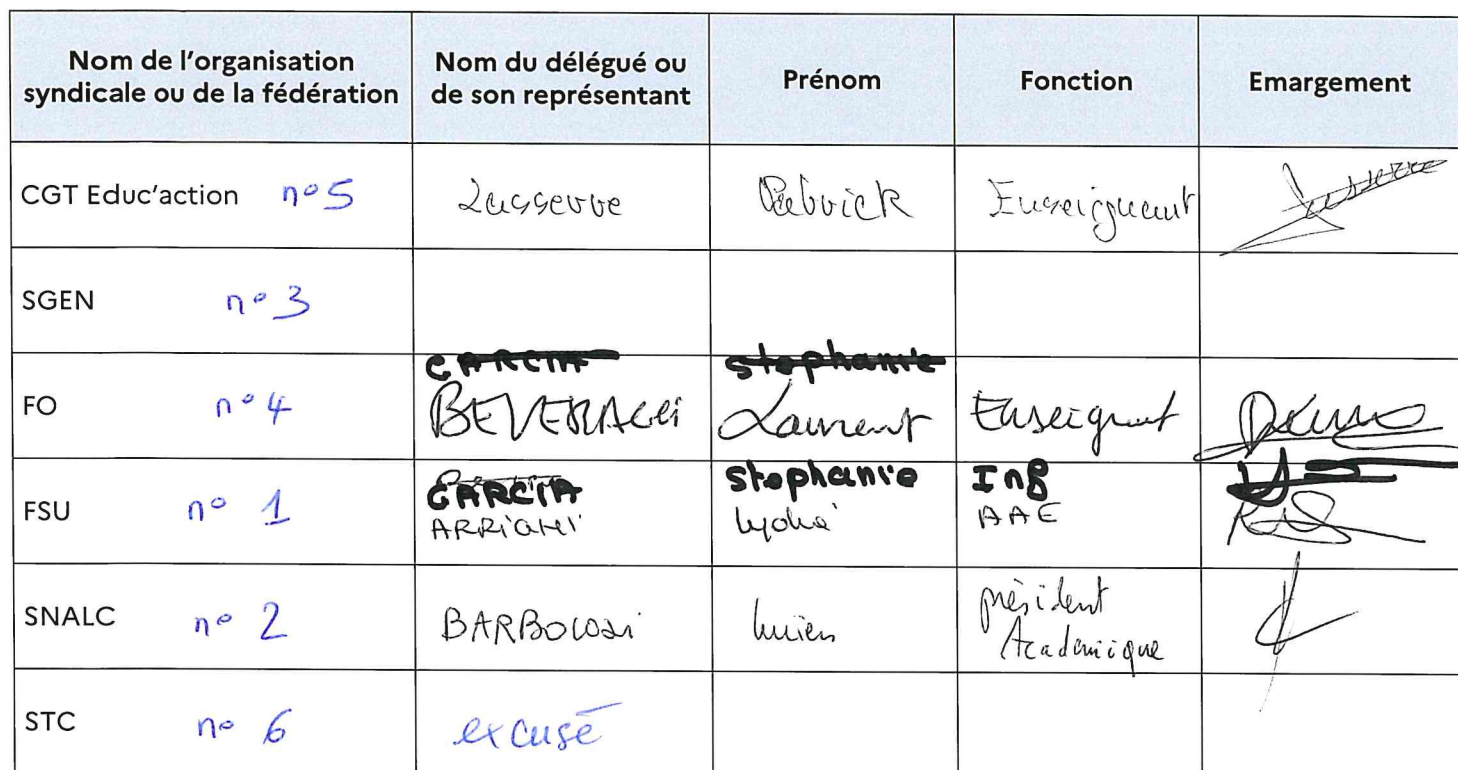 Nom de l'organisation syndicale ou de la fédération
Nom du délégué ou de son représentant
Prénom
Fonction
Emargement
CGT Educ'action n° 5 Lasserre Patrick Enseignant
SGEN n° 3
GARCIA stephanie
FO n° 4 Laurent Enseignant
GARCIA stephanie Ing
FSU n° 1 AAE
SNALC n° 2 président Académique
STC n° 6 excusé